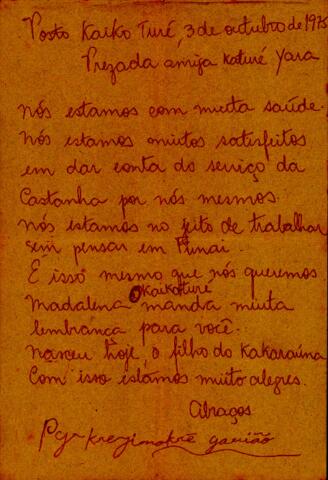 Posto Kaikô Turé, 3 de outubro de 1975
Prezada amiga Katuré Yara
Nós estamos com muita saúde.
Nós estamos muitos satisfeitos
em dar conta do serviço da
Castanha por nós mesmos.
Nós estamos no jeito de trabalhar
sem pensar em Funai.
É isso mesmo que nós queremos
Kaikoturé
Madalena manda muita
lembrança para você.
Nasceu hoje, o filho do Kakaraúna
Com isso estamos muito alegres.
Abraços
Krejimokrê gavião